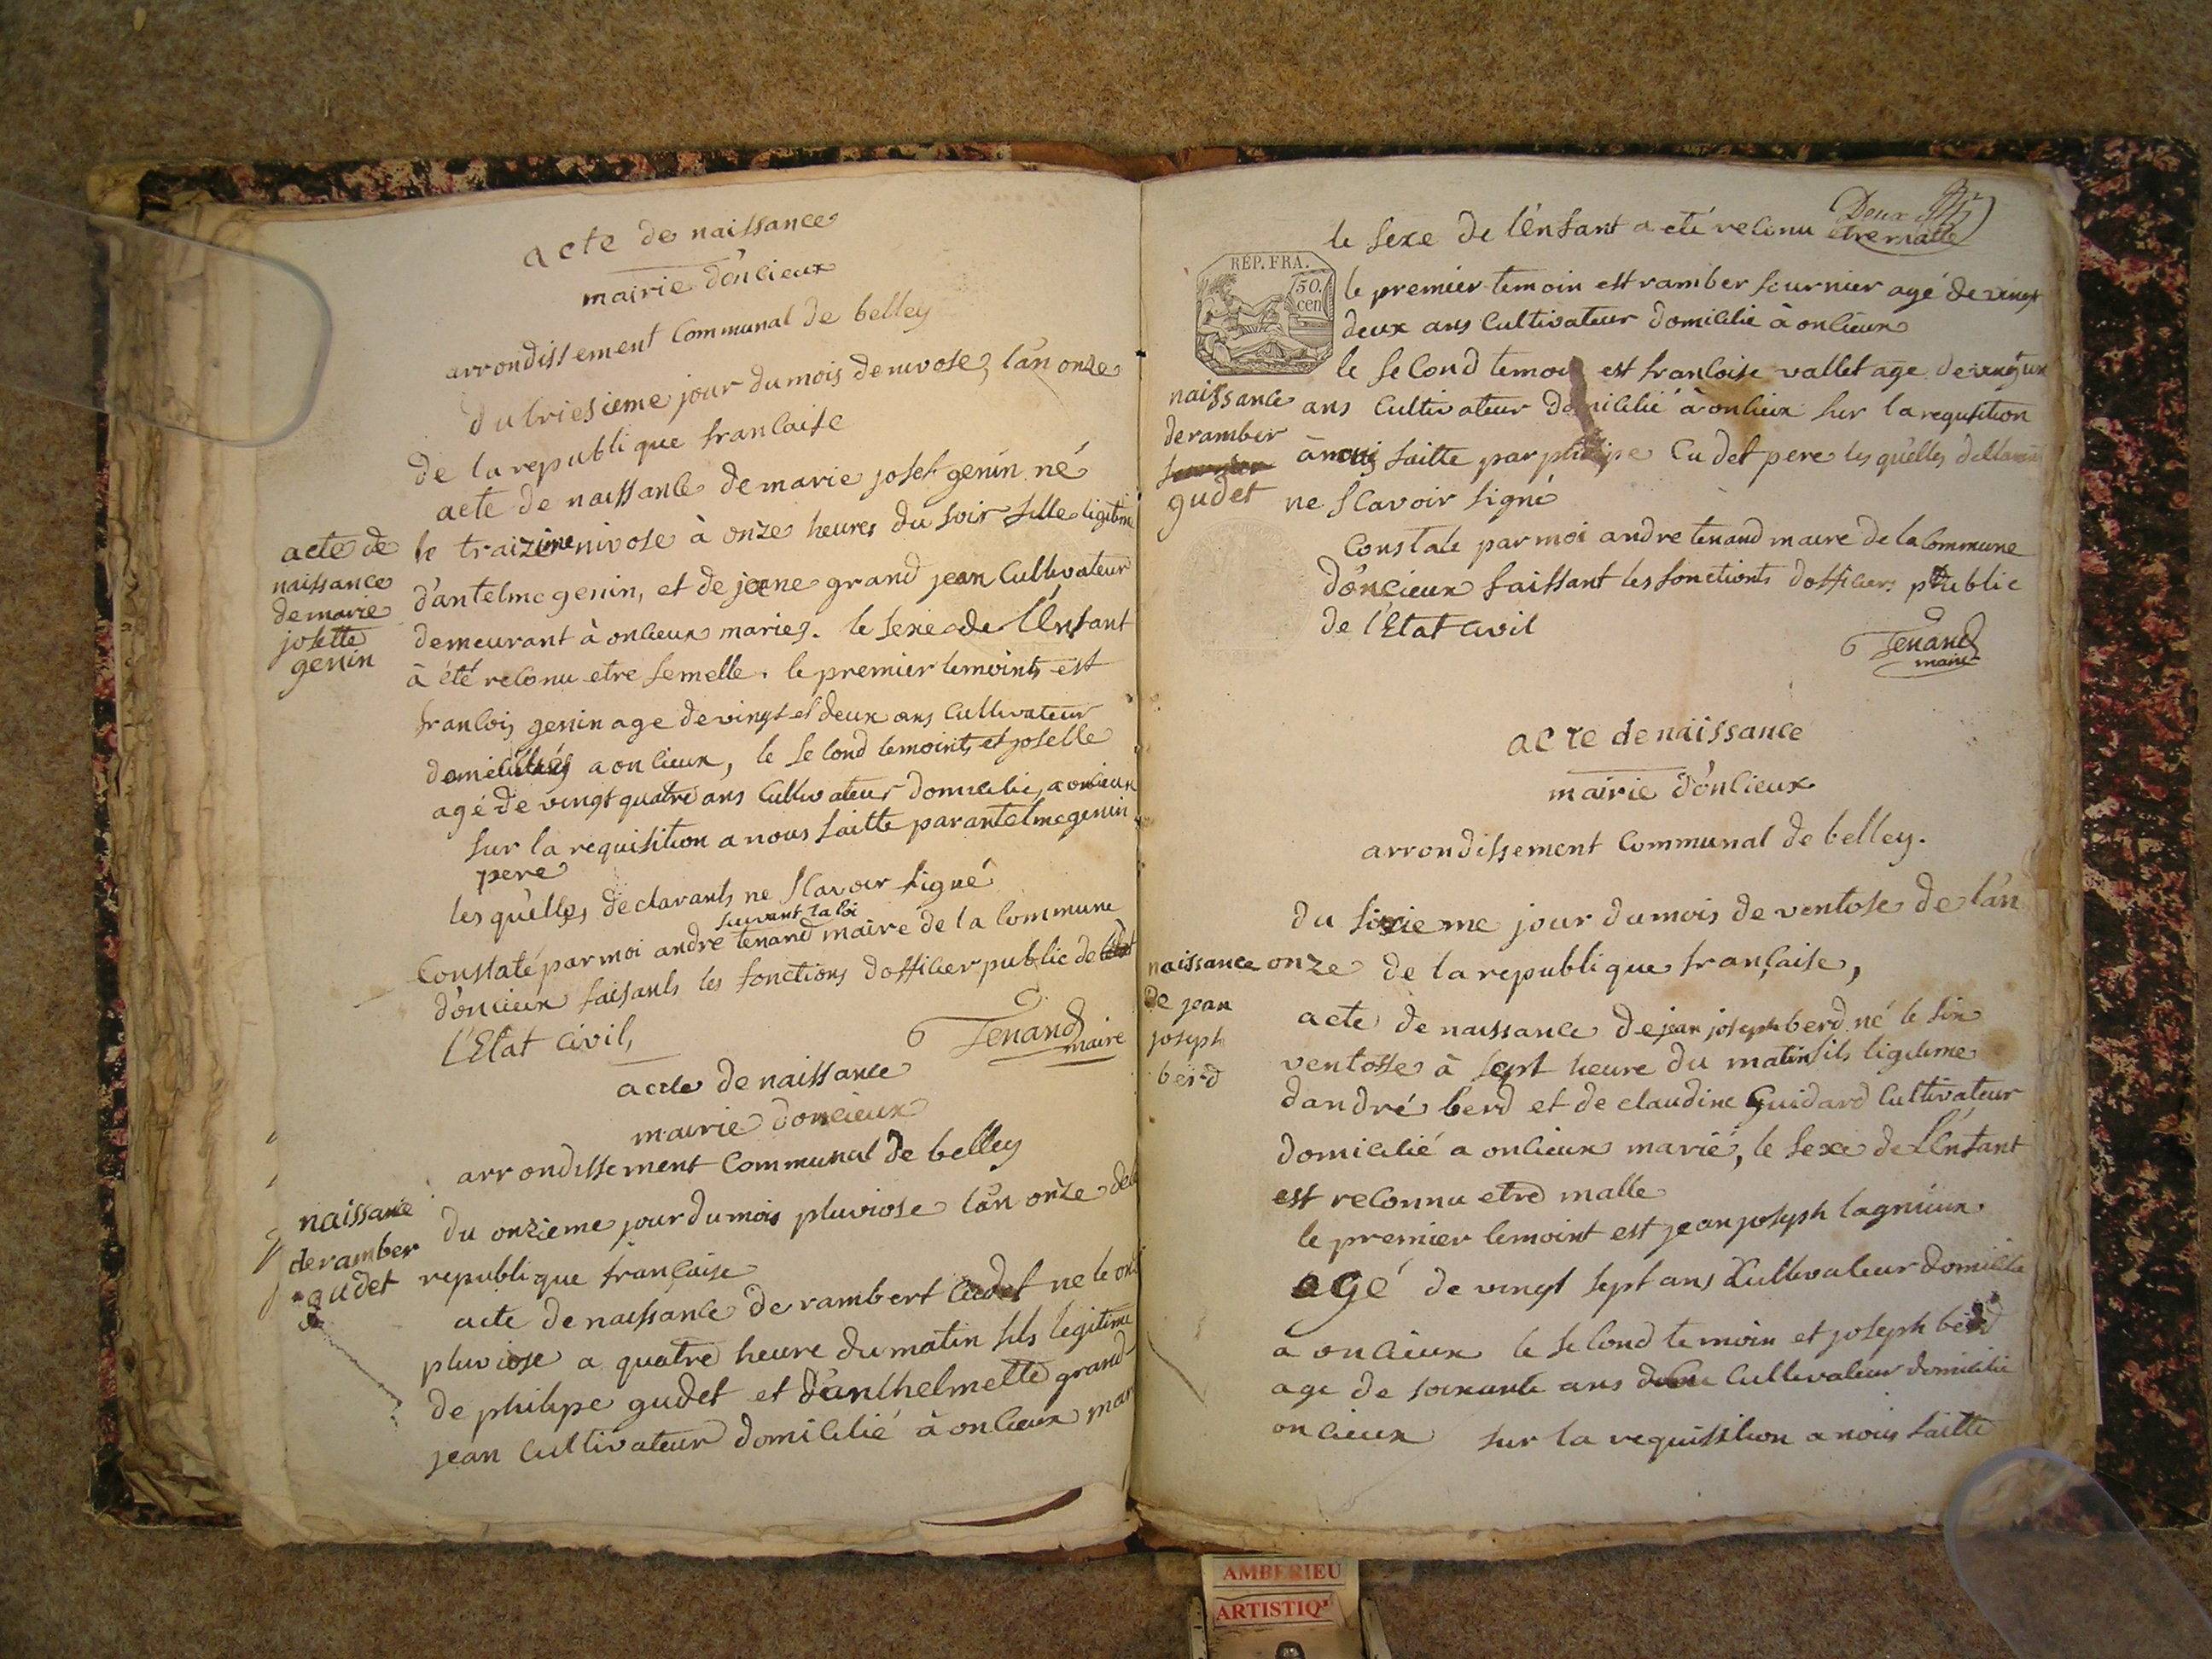 acte de naissance
mairie d'onlieux
arrondissement Communal de belley
du triesieme jour du mois de nivose, l'an onze
de la republique francaise
acte de naissance de marie josef genin né
le traizime nivose à onze heures du soir fille ligitime
d'antelme genin, et de jeane grand jean Cultivateur
demeurant à onlieux mariés. le sexe de l'Enfant
à été reconu etre femelle. le premier temoints est
francois genin age de vingt et deux ans Cultivateur
a onlieux, le second temoints et joselle
agé de vingt quatre ans Cultivateur domicilié, a onlieux
sur la requisition a nous faitte par antelme genin
pere
les qu'elles declarants ne scavoir signé
suivant la loi
Constaté par moi andre tenand maire de la Commune
d'oncieux faisants les fonctions d'officier public de
l'Etat Civil,
Tenand
maire
acte de
naissance
de marie
josette
genin
acte de naissance
mairie doncieux
arrondissement Communal de belley
du onzieme jour du mois pluviose l'an onze de la
republique française
acte de naissance de rambert Cudet ne le
pluviose a quatre heure du matin fils legitime
de philipe gudet et d'anthelmette grand
jean Cultivateur domicilié à onlieux
naissance
de ramber
gudet
Deux
le sexe de l'Enfant a eté reconu etre malle
RÉP. FRA.
50.
cen
le premier temoin est ramber fournier agé de vingt
deux ans Cultivateur domicilié à onlieux
le second temoin est francoise vallet age de vingt un
ans Cultivateur domicilié à onlieux sur la requsition
à nous faitte par philipe Cudet pere les qu'elles
ne scavoir signé
Constaté par moi andre tenand maire de la Commune
d'oncieux faissant les fonctionts d'officier public
de l'Etat Civil
Tenand
maire
naissance
de ramber
gudet
acte de naissance
mairie d'onlieux
arrondissement Communal de belley.
du sixieme jour du mois de ventose de l'an
onze de la republique française,
acte de naissance de jean joseph berd né le six
ventosse à sept heure du matin fils ligitime
dandré berd et de claudine Guidard Cultivateur
domicilié a onlieux marié, le sexe de l'Enfant
est reconnu etre malle
le premier temoint est jean joseph lagnieux
agé de vingt sept ans Cultivateur domicilié
a onlieux le second temoin et joseph berd
age de soixante ans Cultivateur domicilié
onlieux sur la requisition a nous faitte
naissance
de jean
joseph
berd
AMBERIEU
ARTISTIQ